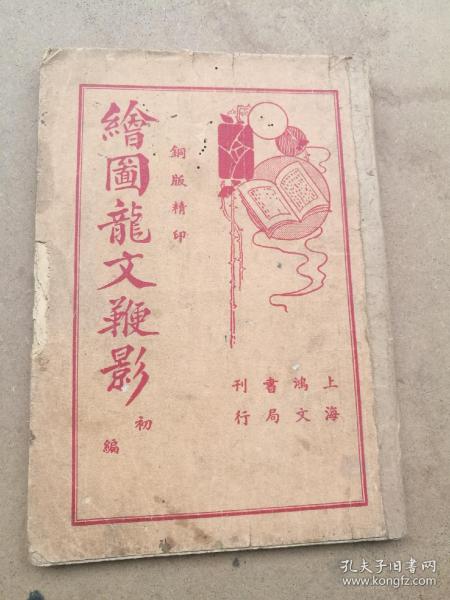 繪圖龍文鞭影
初編
銅版精印
上海
鴻文
書局
刊行
孔夫子旧书网
www.kongfz.com